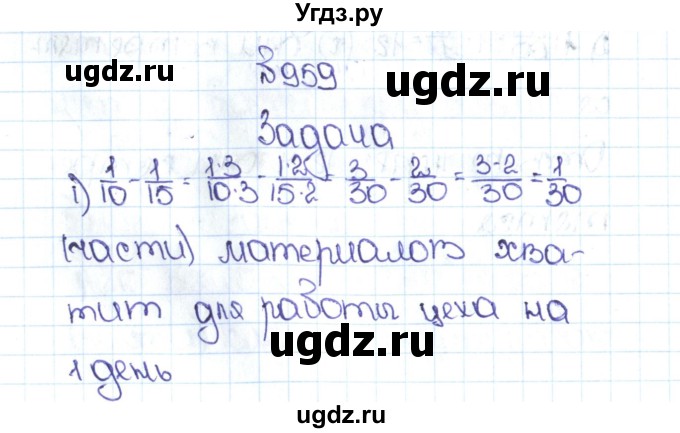 Угдз.ру
ugdz.ru
№959
ugdz.ru
Задача
1) 1/10 - 1/15 = 1·3/10·3 - 1·2/15·2 = 3/30 - 2/30 = 3-2/30 = 1/30
(части) материалов хва-
тит для работы цеха на
ugdz.ru
1 день
ugdz.ru
ugdz.ru